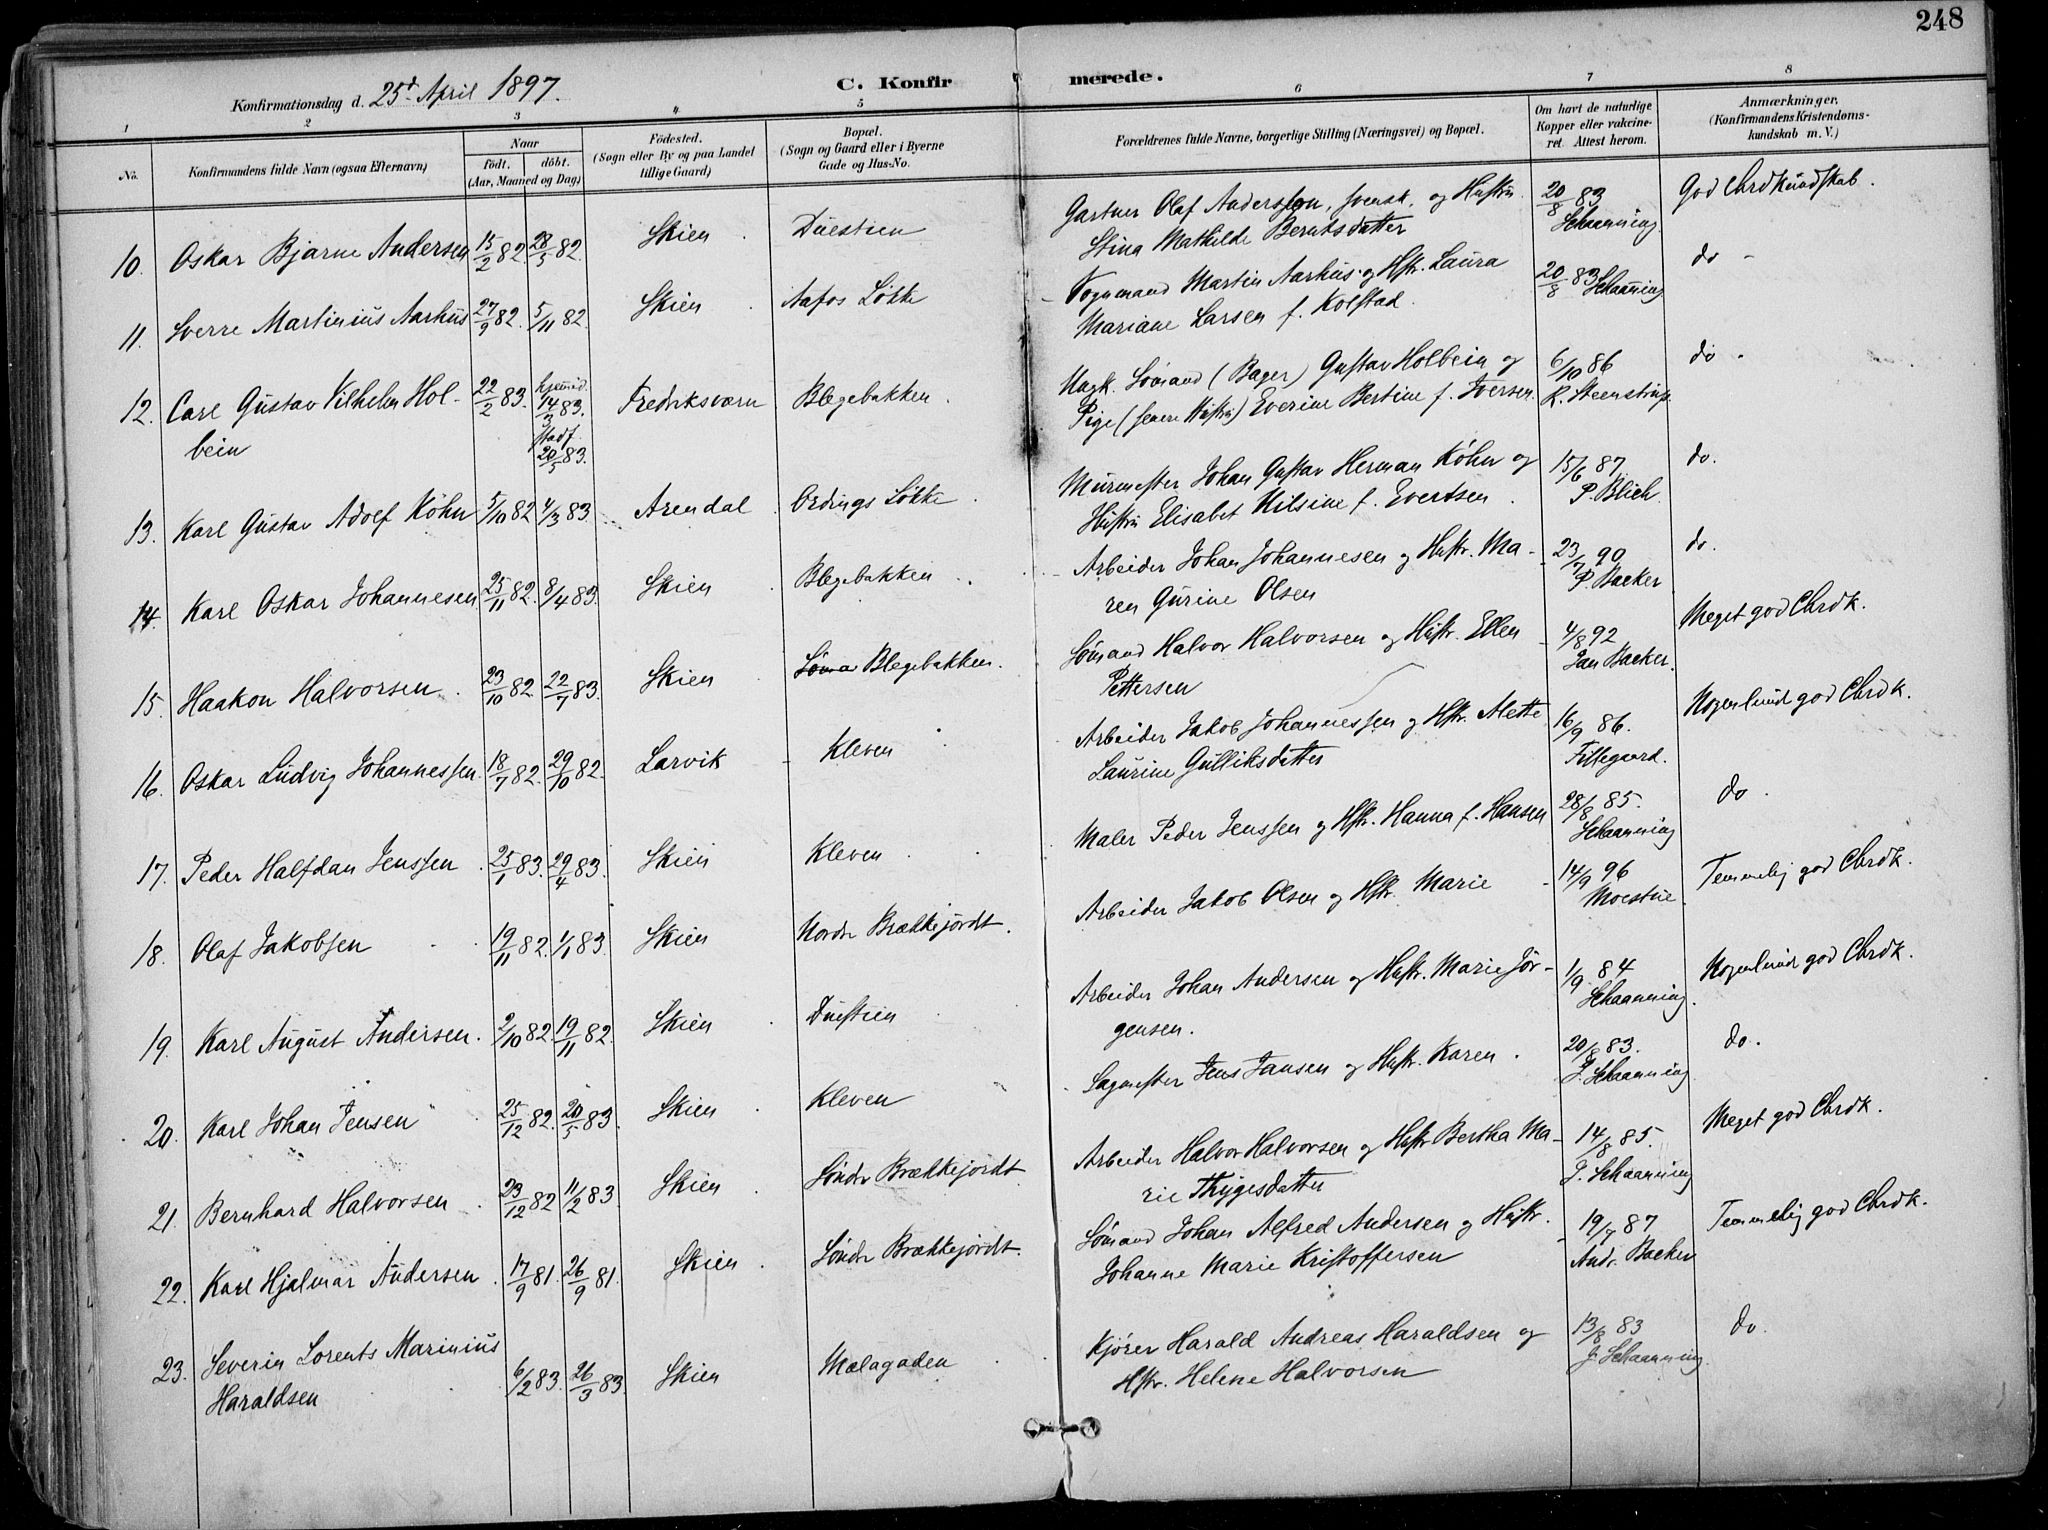 248
C. Konfirmerede.
Konfirmationsdag d. 25d April 1897.
1 2 3 4 5 6 7 8
No.
Konfirmandens fulde Navn (ogsaa Efternavn)
Naar
födt. döbt.
(Aar, Maaned og Dag)
Födested.
(Sogn eller By og paa Landet
tillige Gaard)
Bopæl.
(Sogn og Gaard eller i Byerne
Gade og Hus-No.
Forældrenes fulde Navne, borgerlige Stilling (Næringsvei) og Bopæl.
Om havt de naturlige
Kopper eller vakcine-
ret. Attest herom.
Anmærkninger,
(Konfirmandens Kristendoms-
kundskab m. V.)
10. Oskar Bjarne Andersen 15/2 82. 28/5 82. Skien Duestien
Gartner Olaf Andersson, svensk, og Hustru
Stina Mathilde Berntsdatter
20/8 83
Schaanning
God Chrdkundskab.
11. Sverre Martinius Aarhus 27/9 82. 5/11 82. Skien Aafos Løkke
Vognmand Martin Aarhus og Hstr. Laura
Mariane Larsen f. Kolstad.
20/8 83 Schaanning
do
12. Carl Gustav Vilhelm Hol-
bein
22/2 83. hjemmed.
14/3 83.
stadf.
20/5 83.
Fredriksværn Blegebakken.
Ungk. Sömand (Bager) Gustav Holbein og
Pige (senere Hustru) Everine Bertine f. Iversen
6/10 86
R. Steenstrup
do
13. Karl Gustav Adolf Köhn 5/10 82 4/3 83. Arendal Ordings Løkke
Murmester Johan Gustav Herman Köhn og
Hustru Elisabet Nilsine f. Evertsen
15/6 87.
P. Blich
do.
14. Karl Oskar Johannesen 25/11 82. 8/4 83. Skien Blegebakken
Arbeider Johan Johannesen og Hustr. Ma-
ren Gurine Olsen
23/7 90
P. Backer
do.
15. Haakon Halvorsen 23/10 82. 22/7 83. Skien Blegebakken.
Sömand Halvor Halvorsen og Hustr. Ellen
Pettersen
4/8 92
Jan Backer.
Meget god Chrdk.
16. Oskar Ludvig Johannessen 18/7 82. 29/10 82. Larvik Kleven
Arbeider Jakob Johannessen og Hstr. Alette
Laurine Gulliksdatter
16/9 86.
Fillegaard.
Nogenlunde god Chrdk.
17. Peder Halfdan Jenssen 25/1 83. 29/4 83. Skien Kleven
Maler Peder Jenssen og Hstr. Hanna f. Hansen
28/8 85.
Schaanning
do.
18. Olaf Jakobsen 19/11 82. 1/1 83. Skien Nordre Brækkejordt.
Arbeider Jakob Olsen og Hstr. Marie
14/9 96
Moestue
Temmelig god Chrdk.
19. Karl August Andersen. 2/10 82. 19/11 82. Skien Duestien
Arbeider Johan Andersen og Hustr. Marie Jør-
gensen.
1/9 84
Schaanning.
Nogenlunde god Chrdk.
20. Karl Johan Jensen 25/12 82. 20/5 83. Skien Kleven
Sagmester Jens Jansen og Hustr. Karen.
20/8 83.
J. Schaanning
do.
21. Bernhard Halvorsen 23/12 82 11/2 83 Skien Söndre Brækkejordt
Arbeider Halvor Halvorsen og Hustr Bertha Ma-
rie Thygesdatter
14/8 85.
J. Schaanning
Meget god Chrdk.
22. Karl Hjalmar Andersen. 17/9 81. 26/9 81. Skien Söndre Brækkejordt.
Sömand Johan Alfred Andersen og Hustr.
Johanne Marie Kristoffersen
19/7 87
Andr. Backer
Temmelig god Chrdk.
23. Severin Lorents Marinius
Haraldsen
6/2 83. 26/3 83. Skien Mælagaden
Kjörer Harald Andreas Haraldsen og
Hstr. Helene Halvorsen
13/8 83
J. Schaanning.
do.